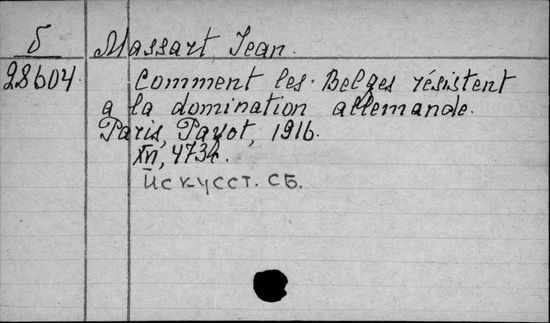 б Massart, Jean.
28604. Comment les Belges résistent
a la domination allemande.
Paris, Payot, 1916.
XVI, 473 с.
Искусст. СБ.